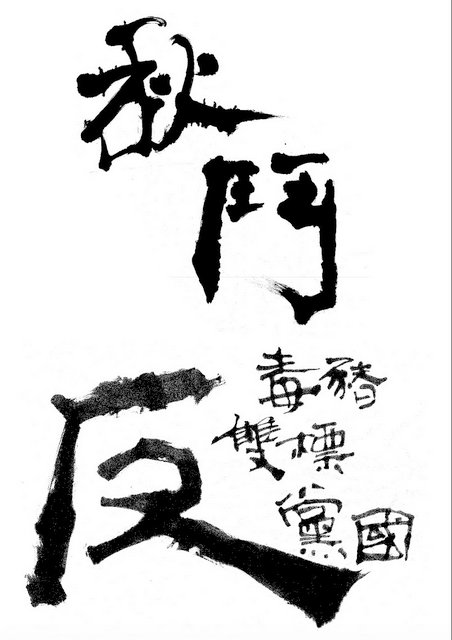 秋
鬥
反
毒豬
雙標
黨國